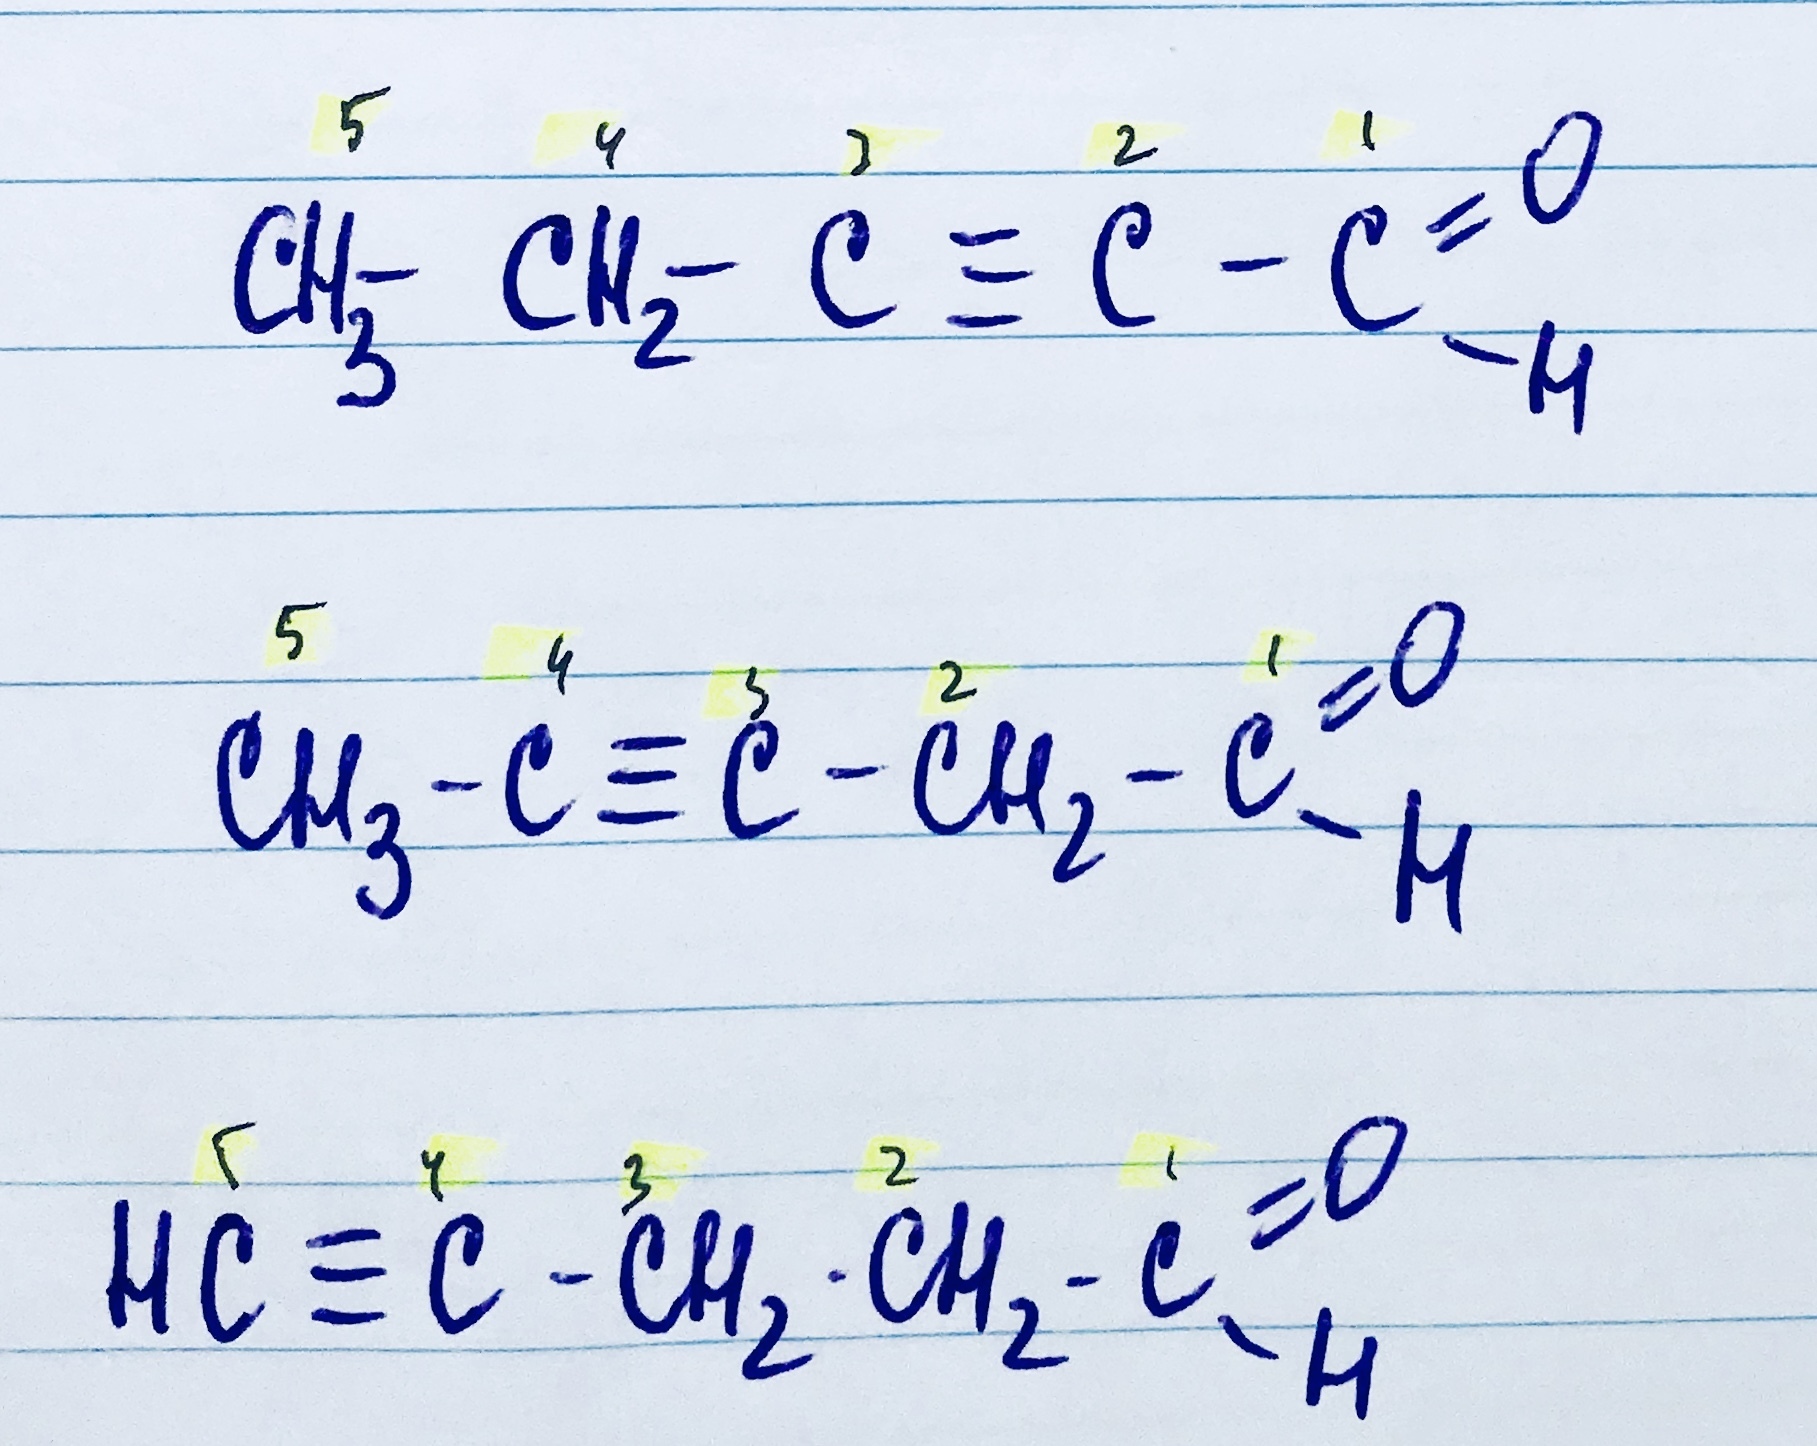 5 4 3 2 1
CH3- CH2- C ≡ C - C =O
-H
5 4 3 2 1
CH3 - C ≡ C - CH2 - C =O
-H
5 4 3 2 1
HC ≡ C - CH2 - CH2 - C =O
-H